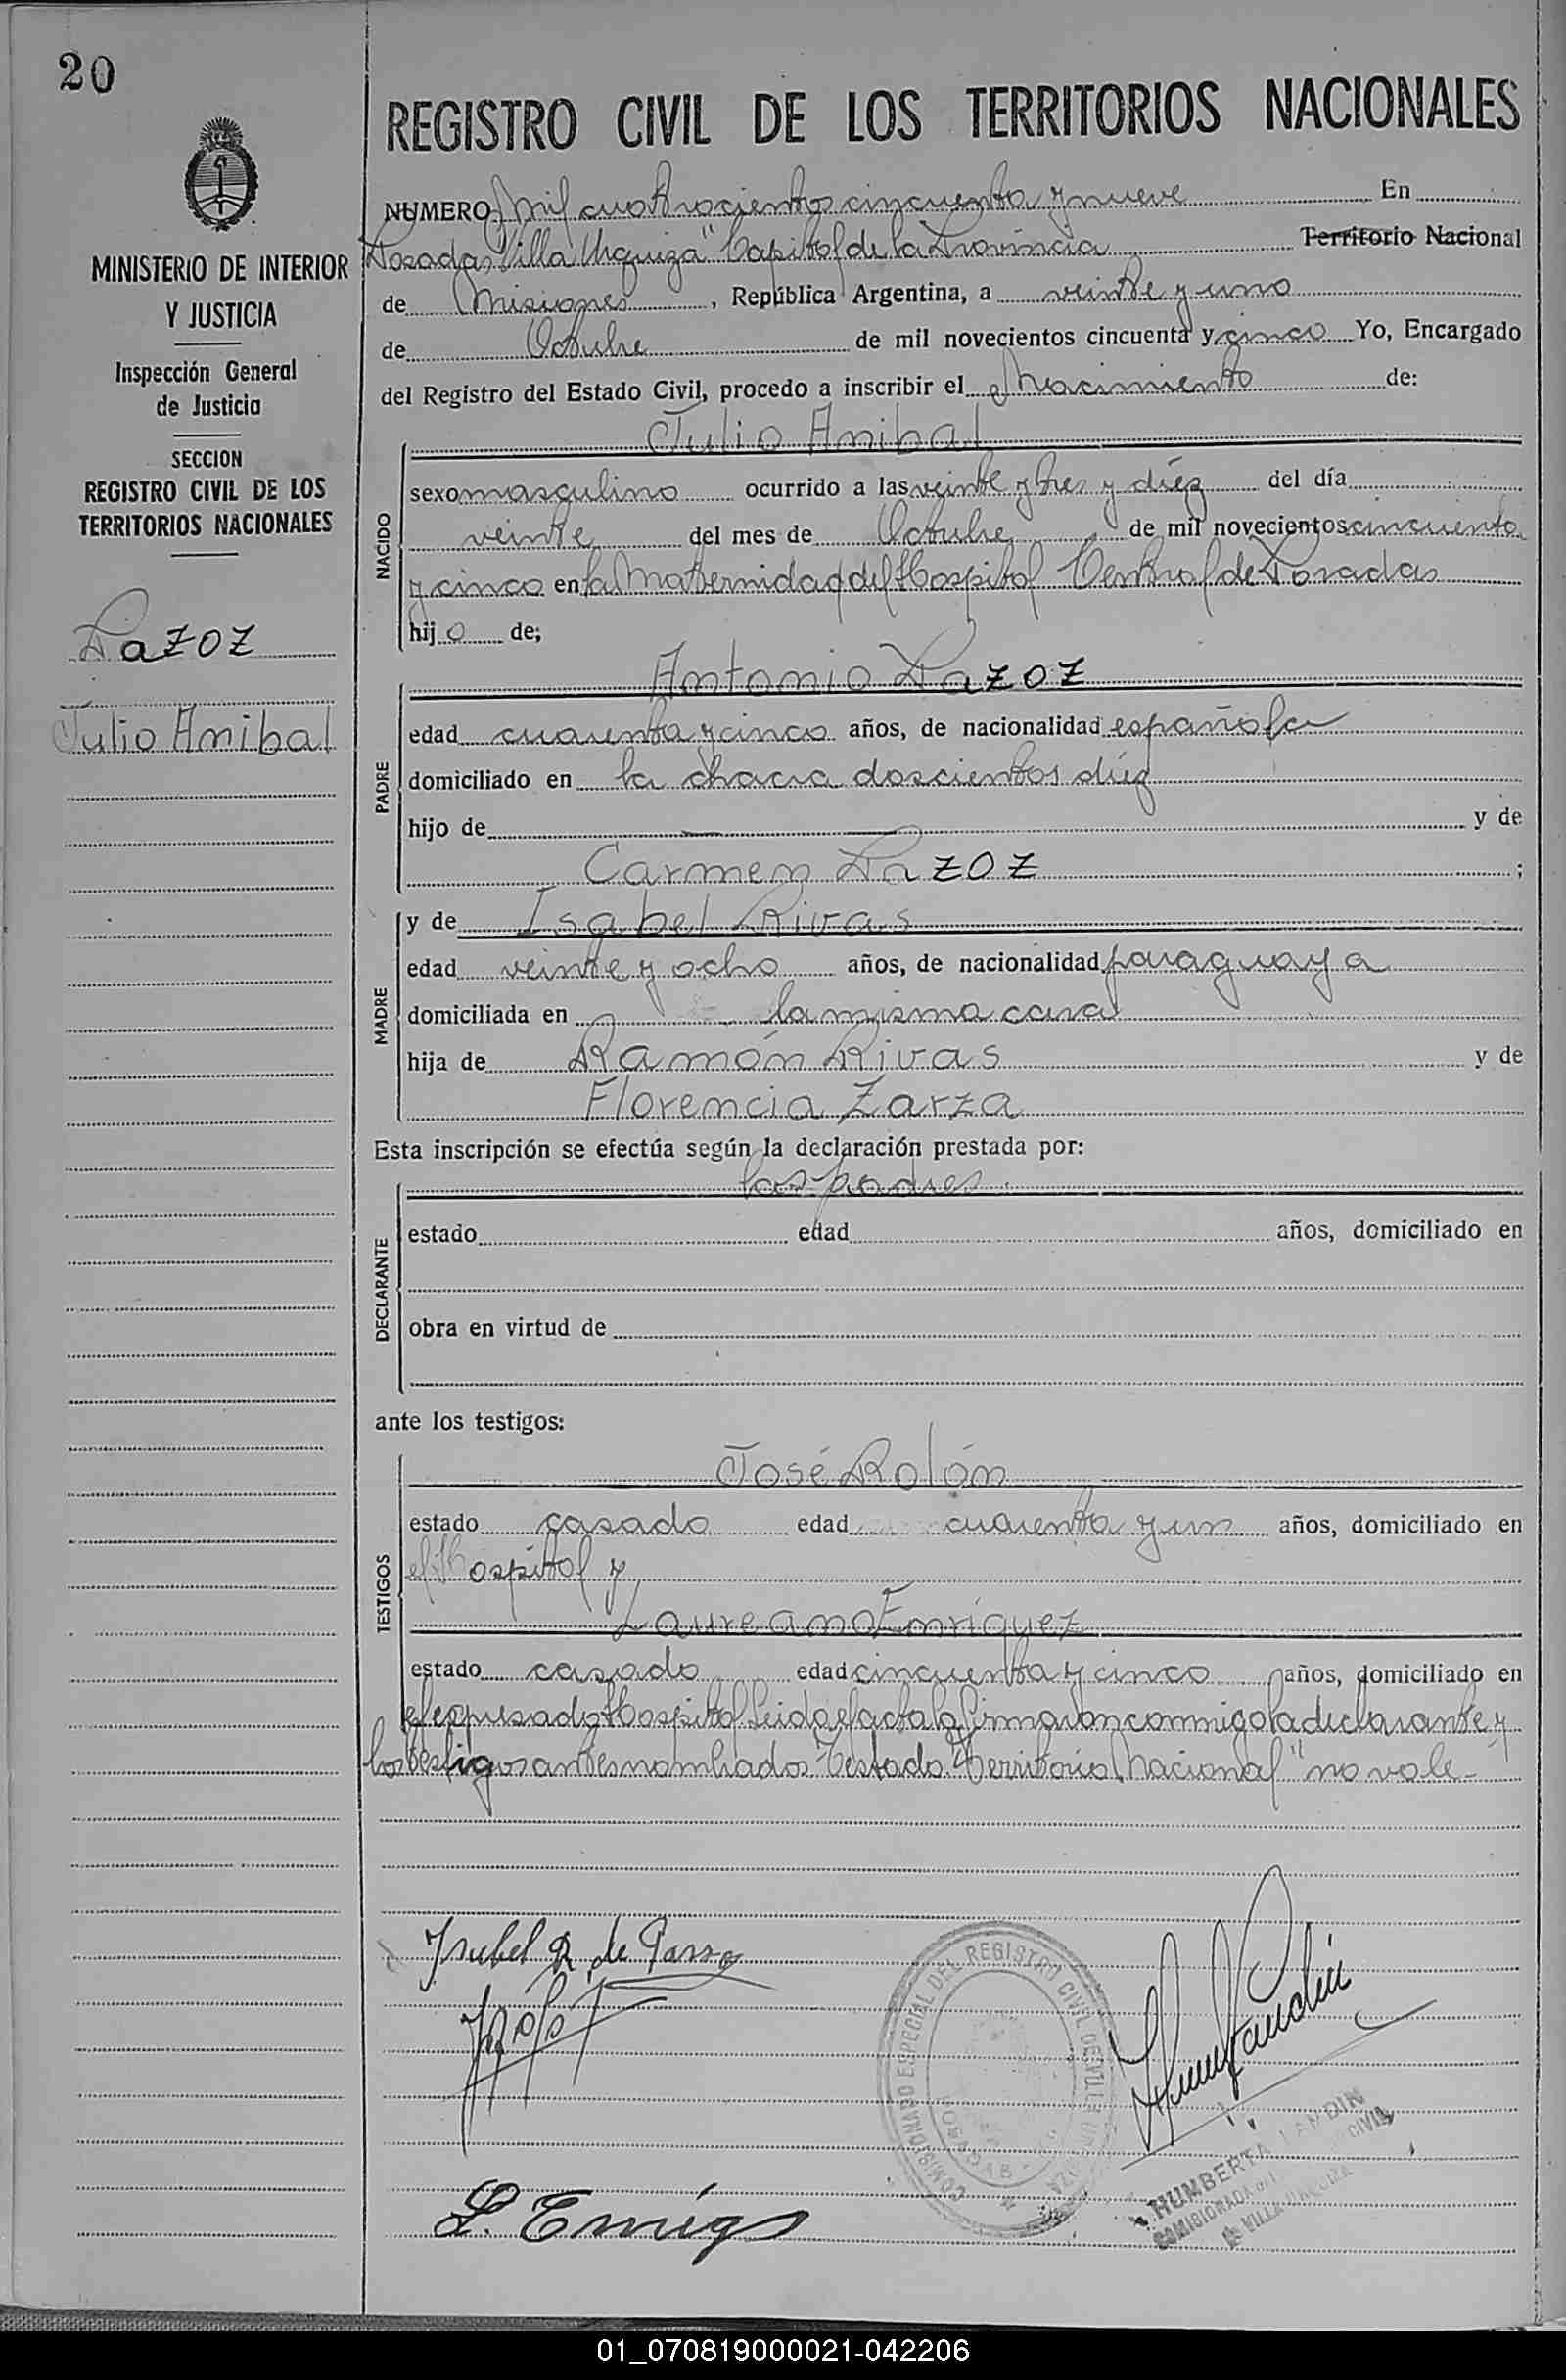 20
MINISTERIO DE INTERIOR
Y JUSTICIA
Inspección General
de Justicia
SECCION
REGISTRO CIVIL DE LOS
TERRITORIOS NACIONALES
Pazoz
Julio Anibal
REGISTRO CIVIL DE LOS TERRITORIOS NACIONALES
NUMERO Mil cuatrocientos cincuenta y nueve En
Posadas "Villa Urquiza" Capital de la Provincia Territorio Nacional
de Misiones, República Argentina, a veinte y uno
de Octubre de mil novecientos cincuenta y cinco Yo, Encargado
del Registro del Estado Civil, procedo a inscribir el Nacimiento de:
Julio Anibal
NACIDO
sexo masculino ocurrido a las veinte y tres y diéz del día
veinte del mes de Octubre de mil novecientos cincuenta
y cinco en la Maternidad del Hospital Central de Posadas
hijo de;
Antonio Pazoz
PADRE
edad cuarenta y cinco años, de nacionalidad española
domiciliado en la chacra doscientos diéz
hijo de y de
Carmen Pazoz ;
y de Isabel Rivas
MADRE
edad veinte y ocho años, de nacionalidad paraguaya
domiciliada en la misma casa
hija de Ramón Rivas y de
Florencia Zarza
Esta inscripción se efectúa según la declaración prestada por:
los padres
DECLARANTE
estado edad años, domiciliado en
obra en virtud de
ante los testigos:
José Rolón
TESTIGOS
estado casado edad cuarenta y un años, domiciliado en
el Hospital y
Laureano Enríquez
estado casado edad cincuenta y cinco años, domiciliado en
el expresado Hospital. Leida el acta la firmaron conmigo la declarante y
los testigos antes nombrados. Testado "Territorio Nacional" no vale-
Isabel R. de
COMISIONADO ESPECIAL DEL REGISTRO CIVIL DE VILLA URQUIZA
HUMBERTA LANDIN
CIVIL
DE VILLA URQUIZA
01_070819000021-042206